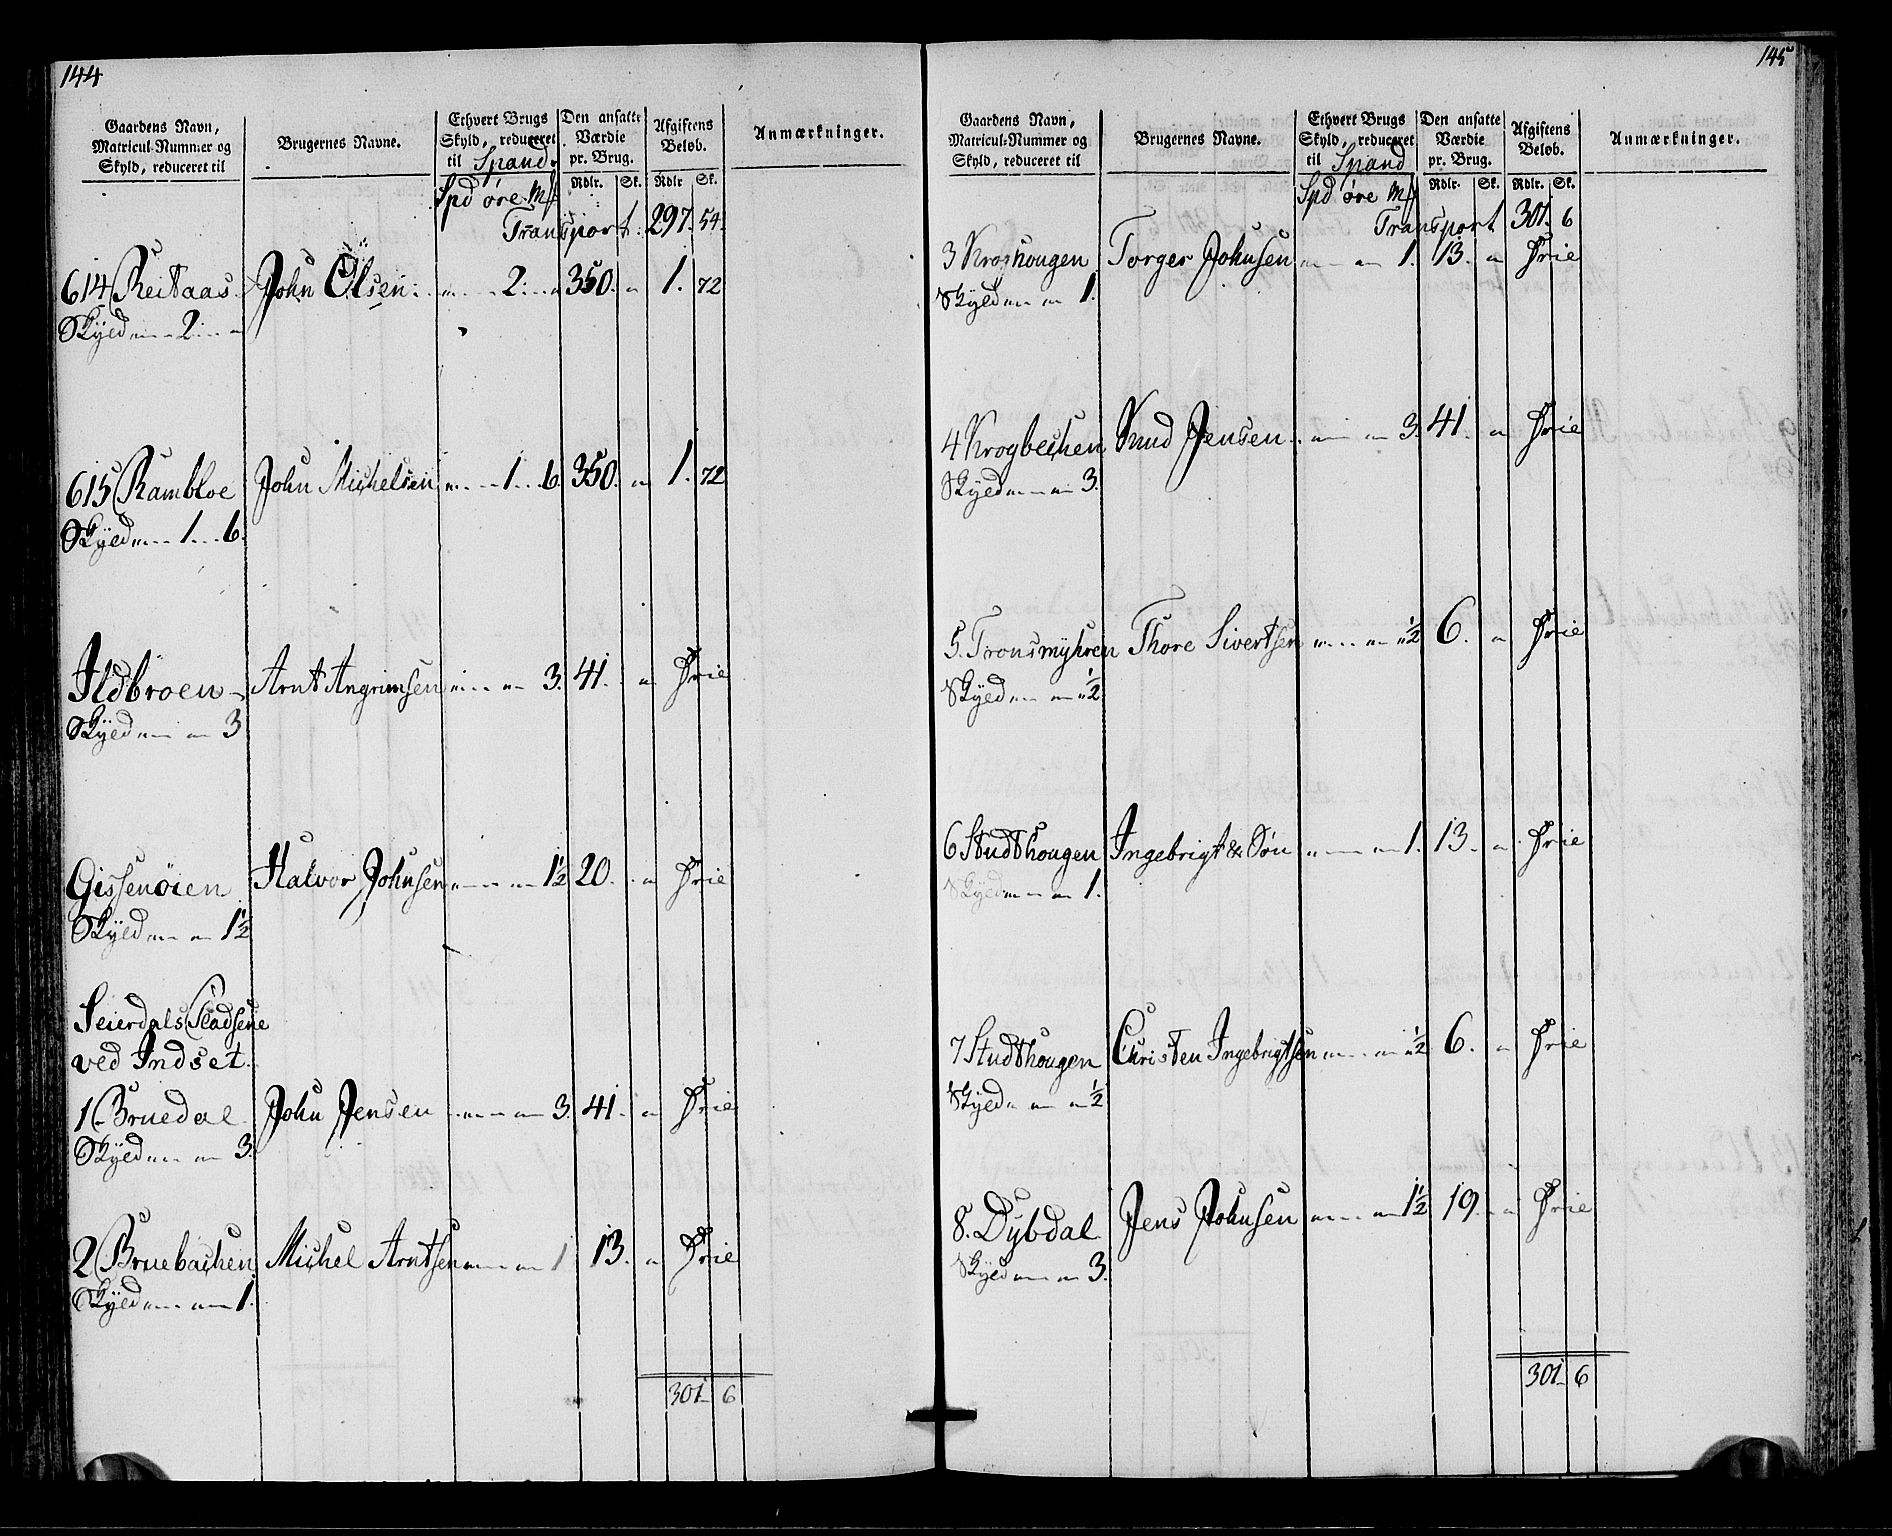 144
Gaardens Navn,
Matricul-Nummer og
Skyld, reduceret til
Brugernes Navne.
Ethvert Brugs
Skyld, reduceret
til Spand.
Den ansatte
Værdie
pr. Brug.
Afgiftens
Beløb.
Anmærkninger.
Rdlr. Sk. Rdlr Sk.
Spd øre Mk
Transport: 297. 54.
614 Reitaas John Olsen 2 350. 1. 72
Skyld 2
615 Rambloe John Michelsen 1 6 350. 1. 72
Skyld 1 6.
Ildbroen Arnt Angrimsen 3. 41. Frie
Skyld 3
Gissenøien Halvor Johnsen 1½ 20. Frie
Skyld 1½
Seierdals Pladsene
ved Indset.
1. Bruedal John Jensen 3. 41. Frie
Skyld 3.
2 Bruebachen Michel Arntsen 1 13. Frie
Skyld 1.
301 6
145
Gaardens Navn,
Matricul-Nummer og
Skyld, reduceret til
Brugernes Navne.
Ethvert Brugs
Skyld, reduceret
til Spand
Den ansatte
Værdie
pr. Brug.
Afgiftens
Beløb.
Anmærkninger.
Rdlr. Sk. Rdlr. Sk.
Spd øre Mk
Transport 301. 6
3 Kroghougen Torger Johnsen 1. 13. Frie
Skyld 1.
4 Krogbechen Knud Jensen 3. 41. Frie
Skyld 3.
5. Tronsmyhren Thore Sivertsen ½ 6. Frie
Skyld ½
6 Studthougen Ingebrigt & Søn 1. 13. Frie
Skyld 1.
7 Studthougen Christen Ingebrigtsen ½ 6. Frie
Skyld ½
8. Dybdal Jens Johnsen 1½ 19. Frie
Skyld 3.
301 6